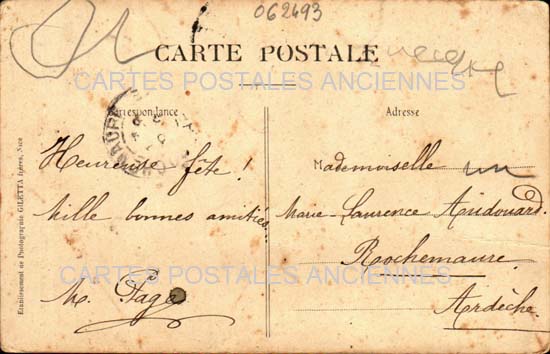 062493
CARTE POSTALE
CARTES POSTALES ANCIENNES
Correspondance
Adresse
Heureuse fête !
Mille bonnes amitiés
M. Page
Mademoiselle
Marie-Laurence Audouard
Rochemaure
Ardèche
CARTES POSTALES ANCIENNES
Etablissement de Photographie GILETTA frères, Nice